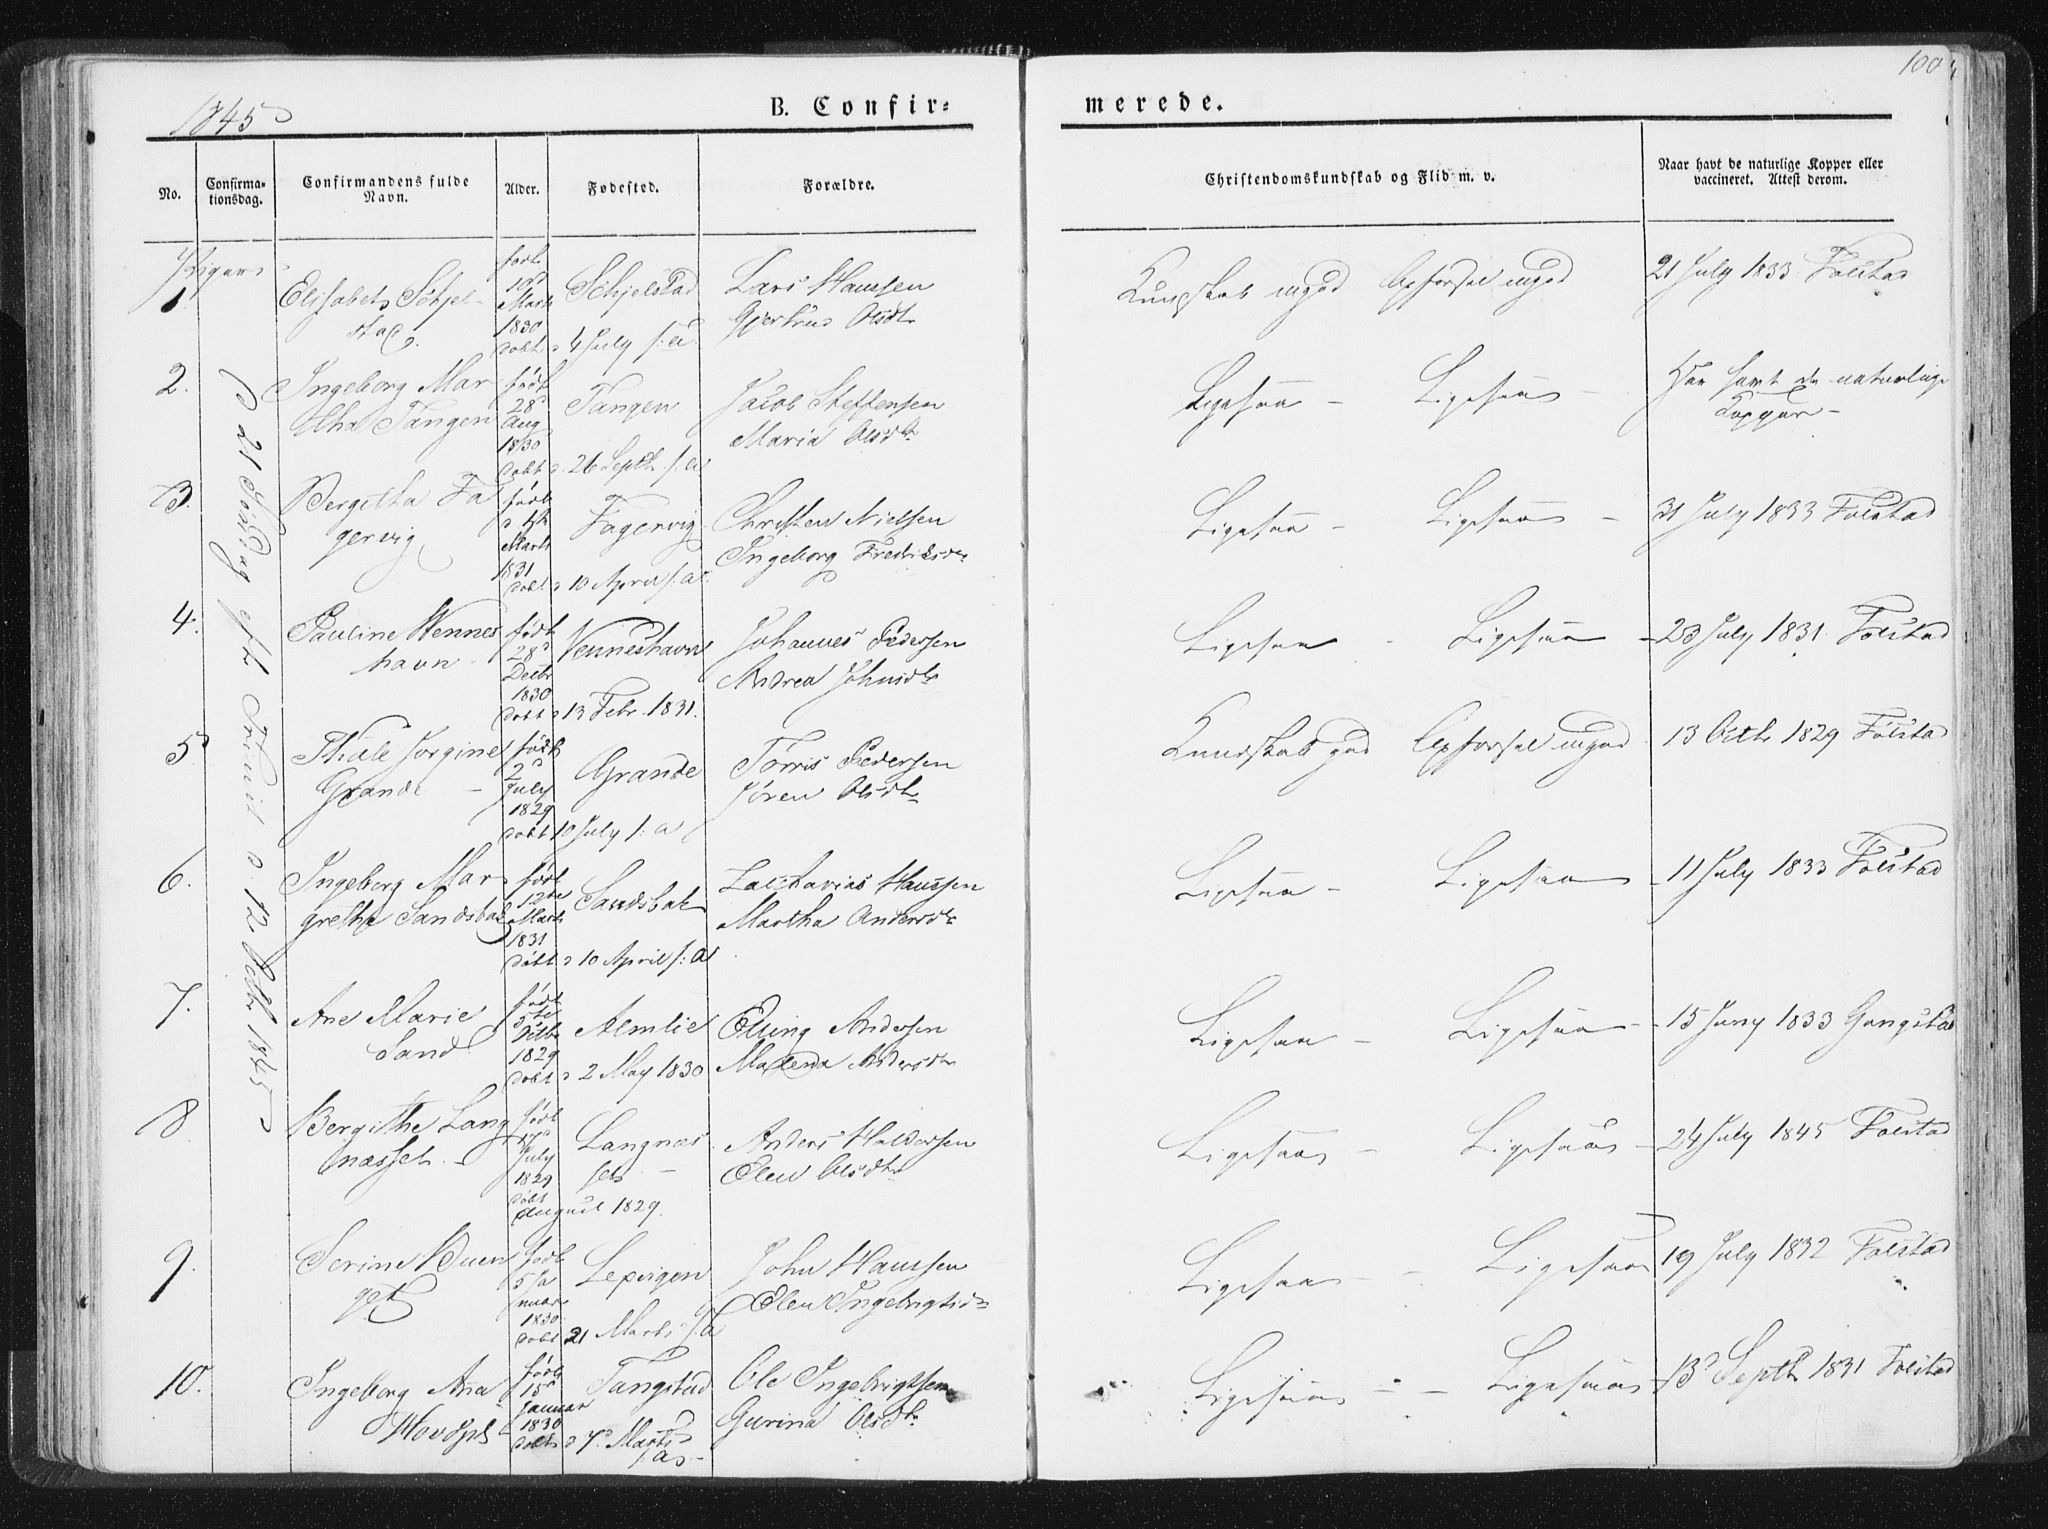 100
1845
B. Confir-
merede.
No.
Confirma-
tionsdag.
Confirmandens fulde
Navn.
Alder.
Fødested.
Forældre.
Christendomskundskab og Flid m. v.
Naar havt de naturlige Kopper eller
vaccineret. Attest derom.
Piger
1
Elisabeth Schjel-
stad.
født
10d
Marts
1830
døbt d 4 July s: a.
Schjelstad
Lars Hanssen
Gjertrud Olsdtr
Kundskab mgod Opførsel mgod
21 July 1833 Folstad
d 21 Søndag eft Trinit d 12 Octbr 1845
2.
Ingeborg Mar
tha Tangen
født
28d
Aug
1830
døbt d. 26 Septbr s: a
Tangen
Jacob Steffensen
Maria Olsdtr
Ligesaa - Ligesaa -
Har havt de naturlige
Kopper -
3.
Bergitha Fa
gervig
født
Marts
1831
døbt d 10 April s: a.
Fagervig
Christen Nielsen
Ingeborg Fredriksdtr
Ligesaa - Ligesaa -
31 July 1833 Folstad
4.
Pauline Wennes
havn -
født
28d
Decbr
1830
døbt d 13 Febr. 1831.
Venneshavn
Johannes Pedersen
Andrea Johnsdtr
Ligesaa - Ligesaa -
23 July 1831. Folstad
5
Thale Jorgine
Grande -
født
2d
July
1829
døbt 10 July s: a
Grande
Tørris Pedersen
Jøren Olsdtr
Kundskab god Opførsel mgod
13 Octb 1829 Folstad
6.
Ingeborg Mar
gretha Sandsbak
født
12te
Marts
1831
døbt d 10 April s: a
Sandsbak
Zacharias Hanssen
Martha Andersdtr
Ligesaa - Ligesaa -
11 July 1833 Folstad
7.
Ane Marie
Sand
født
5te
1829
døbt d 2 May 1830
Almlie
Elling Andersen
Malena Andersdtr
Ligesaa - Ligesaa -
15 Juny 1833 Gangstad
8
Bergithe Lang
næsset -
født
17d
July
1829
døbt
August 1829.
Langnæs
set -
Anders Haldorsen
Elen Olsdtr
Ligesaa - Ligesaa -
24 July 1845 Folstad
9.
Serine Buen
get
født
5 Ja
nuar
1830.
døbt 21 Marts s: a
Lexvigen
John Hanssen
Elen Ingebrigtsdtr
Ligesaa - - Ligesaa
19 July 1832 Folstad
10.
Ingeborg Ana
født
15d
Januar
1830
døbt d 7d Marts
s: a -
Tangstad
Ole Ingebrigtsen
Gurina Olsdtr
Ligesaa - - Ligesaa -
13d Septb 1831 Folstad